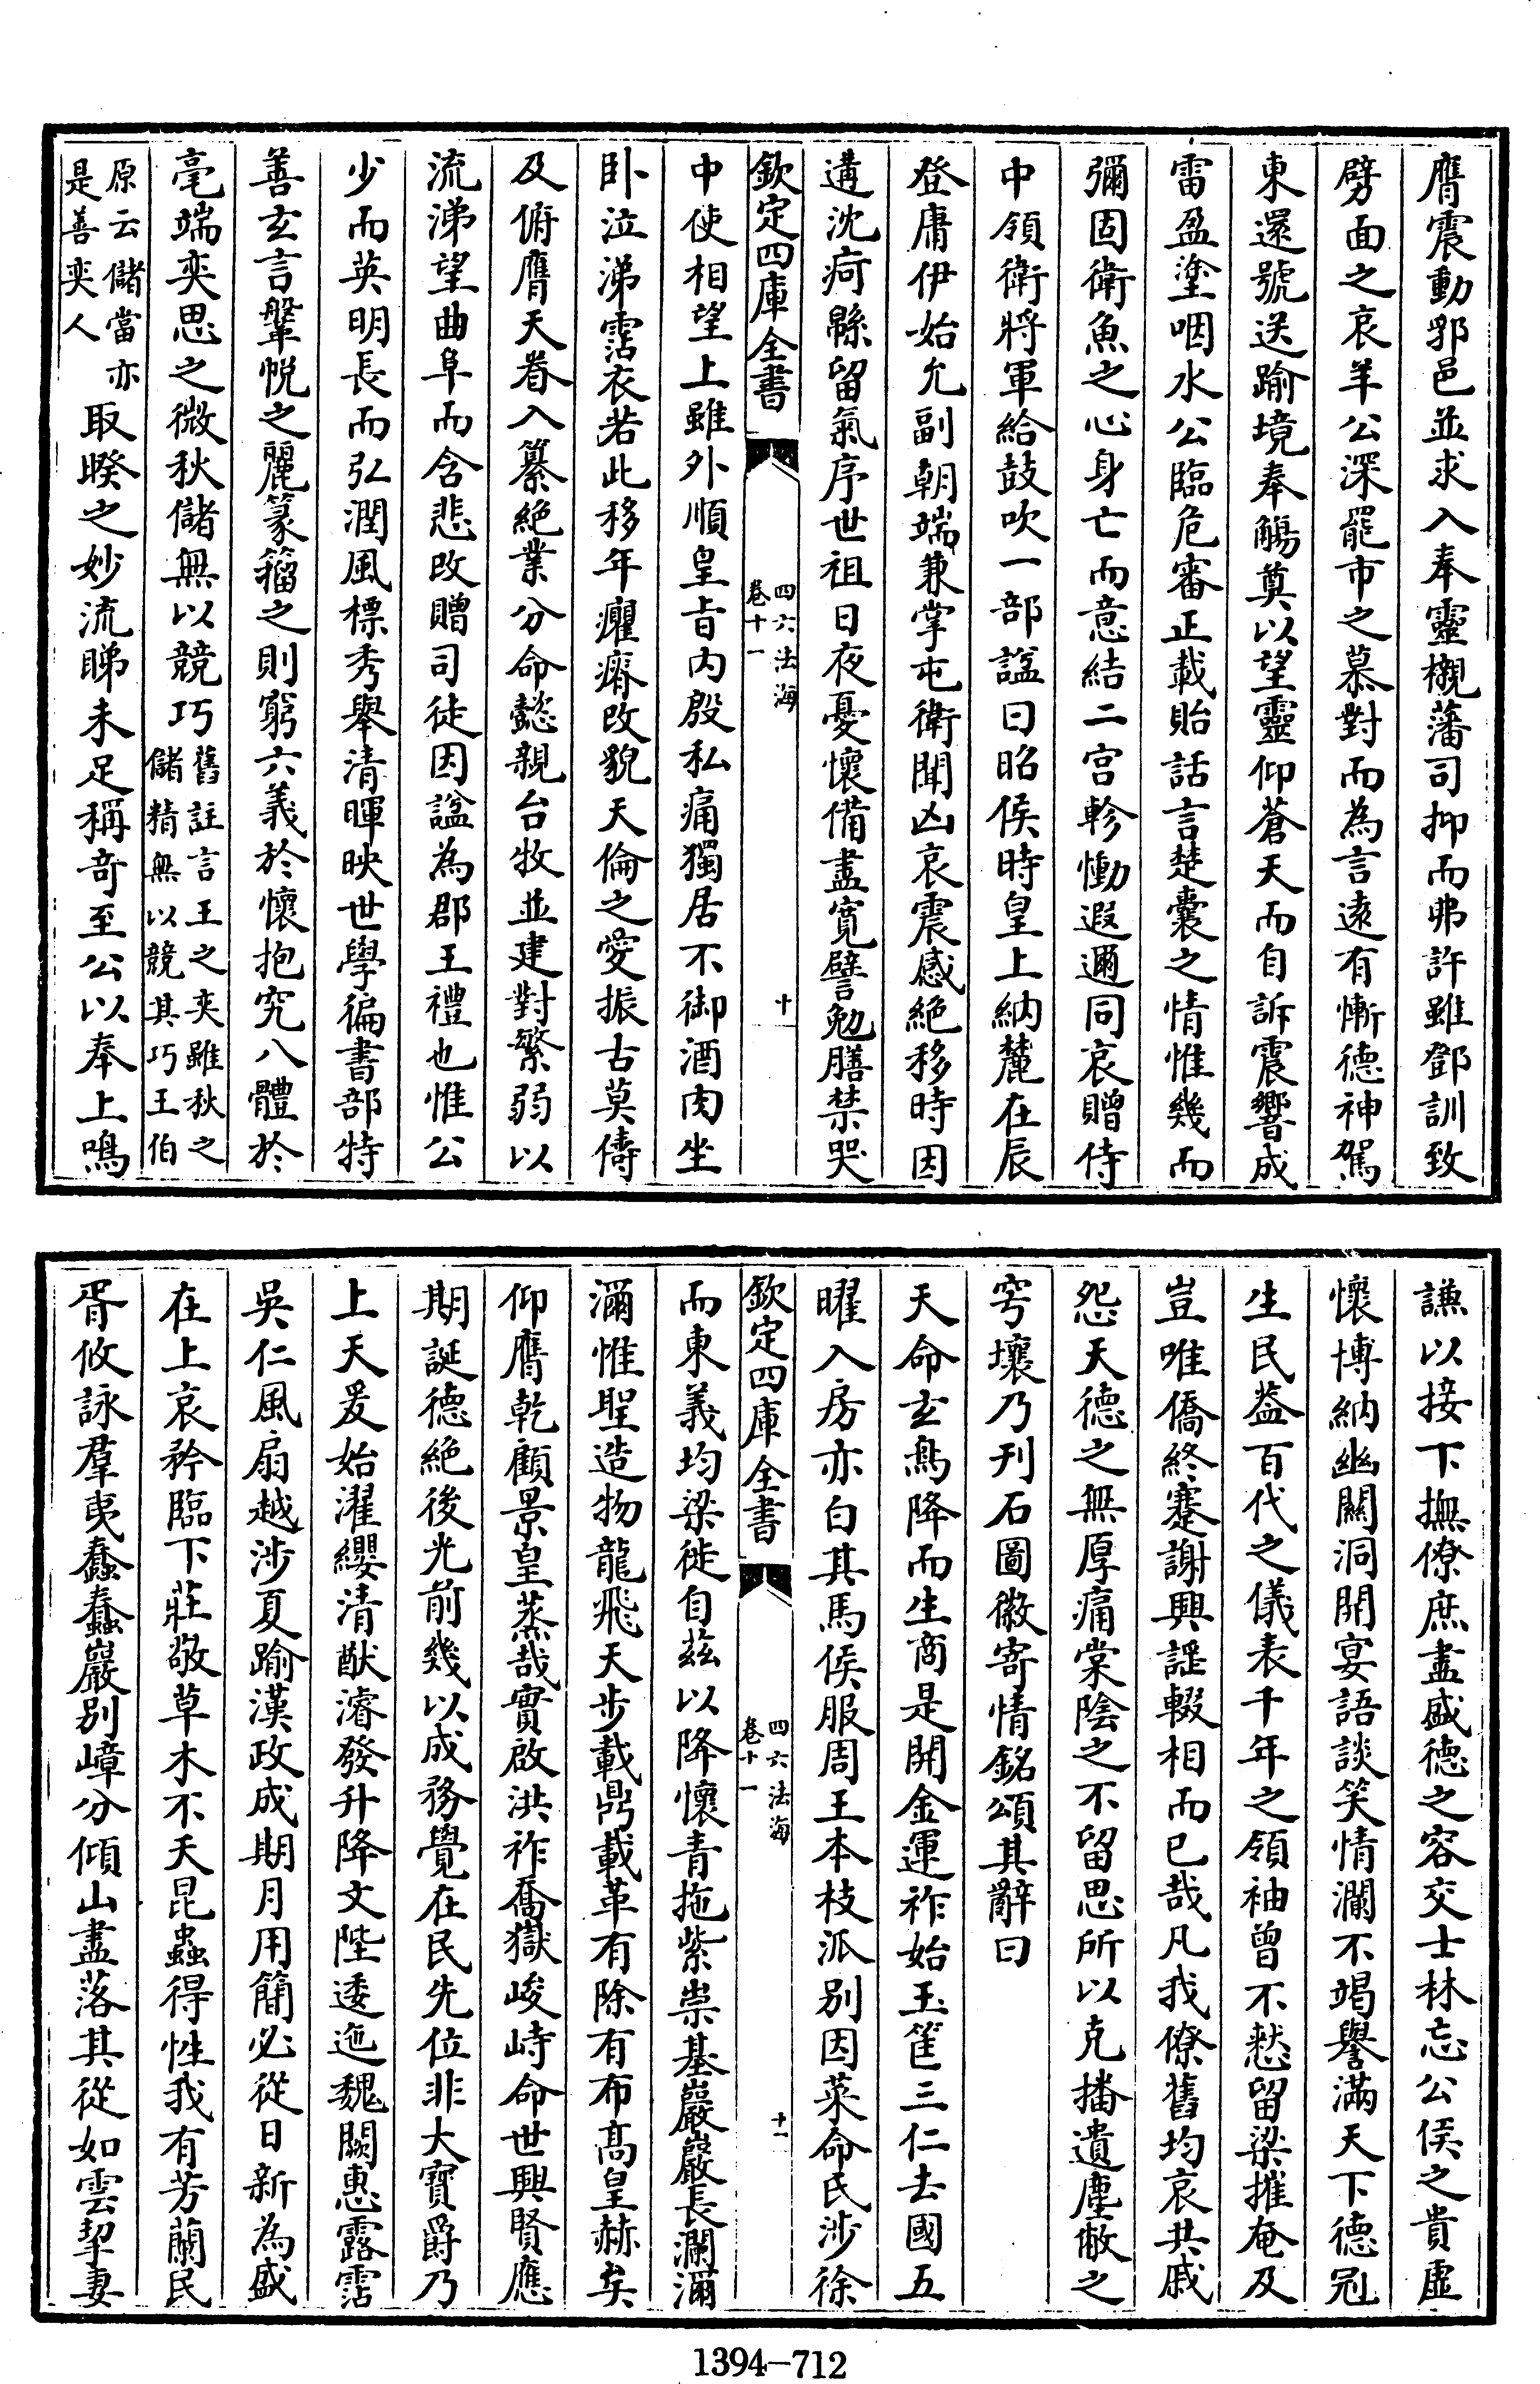 膺震動郛邑並求入奉靈櫬藩司抑而弗許雖鄧訓致
劈面之哀羊公深罷市之慕對而為言遠有慚德神駕
東還號送踰境奉觴奠以望靈仰蒼天而自訴震響成
雷盈塗咽水公臨危審正載貽話言楚囊之情惟幾而
彌固衛魚之心身亡而意結二宮軫慟遐邇同哀贈侍
中領衛將軍給鼓吹一部諡曰昭侯時皇上納麓在辰
登庸伊始允副朝端兼掌屯衛聞凶哀震感絶移時因
遘沈痾緜留氣序世祖日夜憂懷備盡寬譬勉膳禁哭
欽定四庫全書
四六法海
卷十一
十
中使相望上雖外順皇旨內殷私痛獨居不御酒肉坐
卧泣涕霑衣若此移年癯瘠改貌天倫之愛振古莫儔
及俯膺天眷入纂絶業分命懿親台牧並建對繁弱以
流涕望曲阜而含悲改贈司徒因諡為郡王禮也惟公
少而英明長而弘潤風標秀舉清暉映世學徧書部特
善玄言鞶帨之麗篆籀之則窮六義於懷抱究八體於
毫端奕思之微秋儲無以競巧舊註言王之奕雖秋之
儲精無以競其巧王伯
原云儲當亦
是善奕人
取睽之妙流睇未足稱奇至公以奉上鳴
謙以接下撫僚庶盡盛德之容交士林忘公侯之貴虛
懷博納幽關洞開宴語談笑情瀾不竭譽滿天下德冠
生民葢百代之儀表千年之領袖曾不憖留梁摧奄及
豈唯僑終蹇謝興謡輟相而已哉凡我僚舊均哀共戚
怨天德之無厚痛棠陰之不留思所以克播遺塵敝之
穹壤乃刊石圖徽寄情銘頌其辭曰
天命玄鳥降而生商是開金運祚始玉筐三仁去國五
曜入房亦白其馬侯服周王本枝派別因菜命氏涉徐
欽定四庫全書
四六法海
卷十一
十一
而東義均梁徙自茲以降懷青拖紫崇基巖巖長瀾瀰
瀰惟聖造物龍飛天步載鼎載革有除有布高皇赫矣
仰膺乾顧景皇蒸哉實啟洪祚喬嶽峻峙命世興賢應
期誕德絶後光前幾以成務覺在民先位非大寶爵乃
上天爰始濯纓清猷濬發升降文陛逶迤魏闕惠露霑
吳仁風扇越涉夏踰漢政成期月用簡必從日新為盛
在上哀矜臨下莊敬草木不夭昆蟲得性我有芳蘭民
胥攸詠羣夷蠢蠢巖別嶂分傾山盡落其從如雲挈妻
1394-712